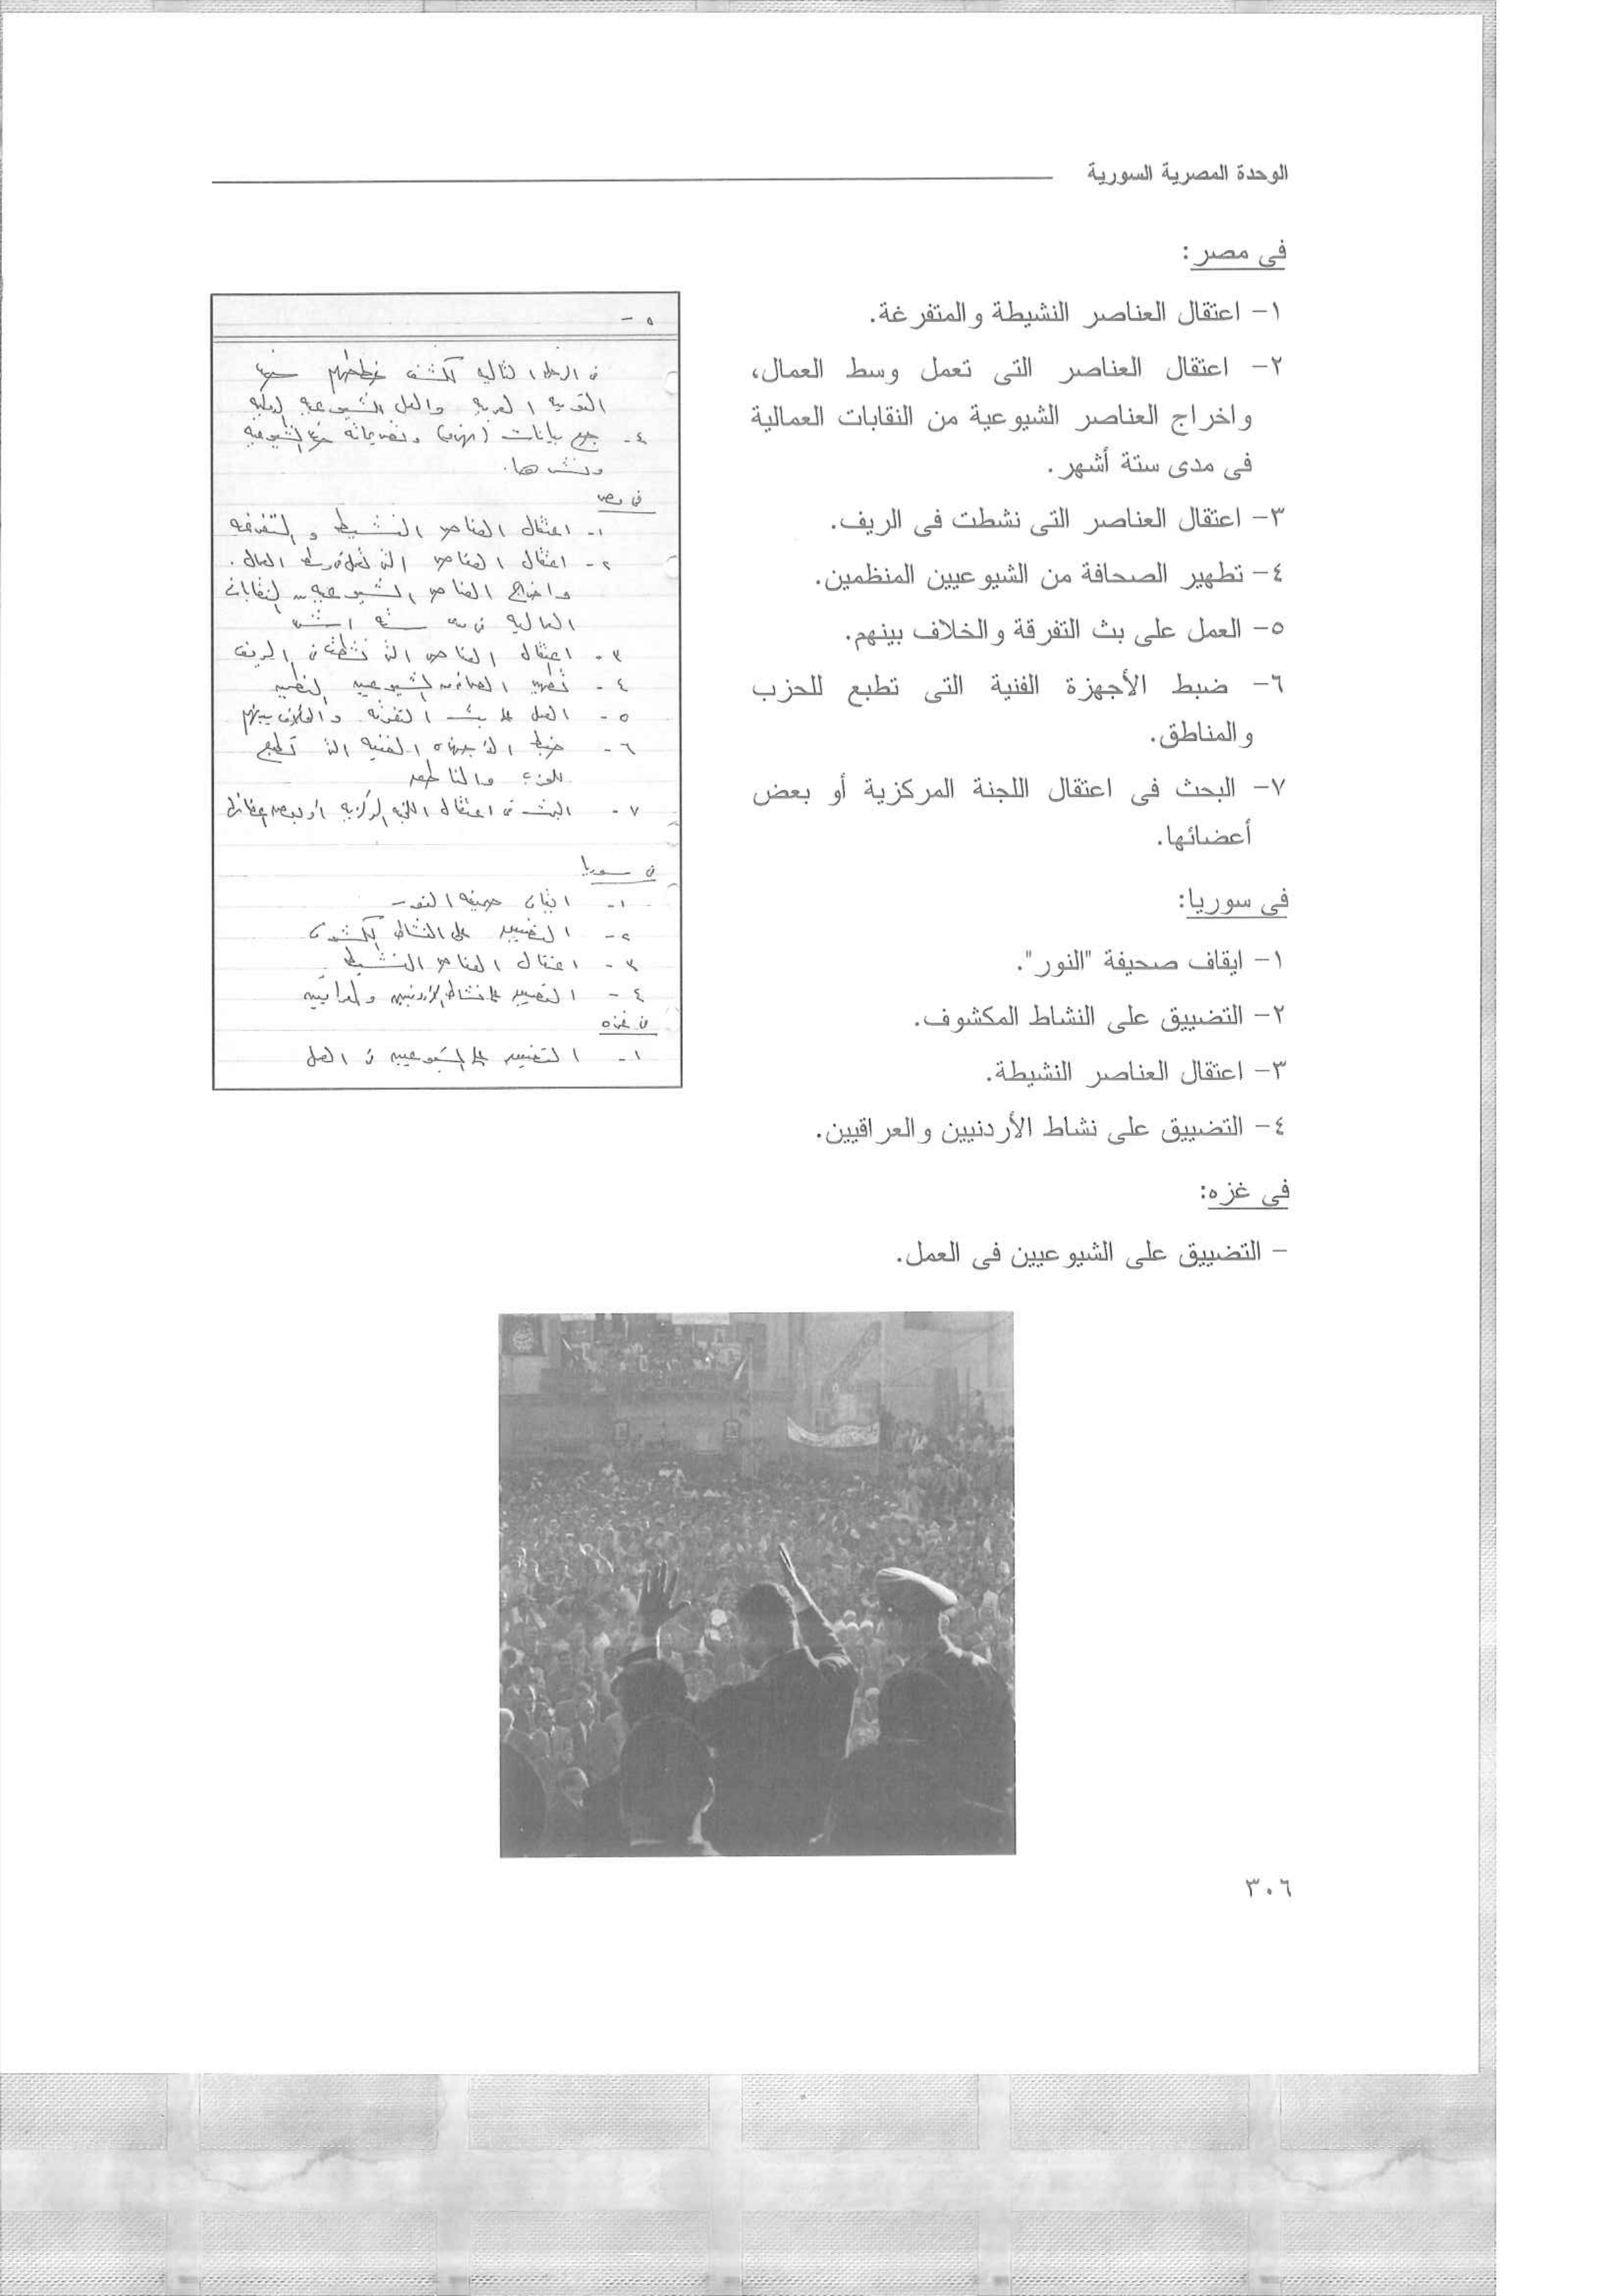 الوحدة المصرية السورية
فى مصر:
١- اعتقال العناصر النشيطة والمتفرغة.
٢- اعتقال العناصر التى تعمل وسط العمال،
واخراج العناصر الشيوعية من النقابات العمالية
فى مدى ستة أشهر.
٣- اعتقال العناصر التى نشطت فى الريف.
٤- تطهير الصحافة من الشيوعيين المنظمين.
٥- العمل على بث التفرقة والخلاف بينهم.
٦- ضبط الأجهزة الفنية التى تطبع للحزب
والمناطق.
٧- البحث فى اعتقال اللجنة المركزية أو بعض
أعضائها.
فى سوريا:
١- ايقاف صحيفة "النور".
٢- التضييق على النشاط المكشوف.
٣- اعتقال العناصر النشيطة.
٤- التضييق على نشاط الأردنيين والعراقيين.
فى غزه:
- التضييق على الشيوعيين فى العمل.
٥ -
القومية العربية والعمل
٤- جمع بيانات
ونشرها.
فى مصر
١- اعتقال العناصر النشيطة والمتفرغة
٢- اعتقال العناصر التى تعمل وسط العمال.
واخراج العناصر الشيوعية من النقابات
العمالية فى مدى ستة اشهر
٣- اعتقال العناصر التى نشطت فى الريف
٤- تطهير الصحافة من الشيوعيين المنظمين
٥- العمل على بث التفرقة والخلاف بينهم
٦- ضبط الأجهزة الفنية التى تطبع
للحزب والمناطق
٧- البحث فى اعتقال اللجنة المركزية أو بعض اعضائها
فى سوريا
١- ايقاف صحيفة النور
٢- التضييق على النشاط المكشوف
٣- اعتقال العناصر النشيطة
٤- التضييق على نشاط الأردنيين والعراقيين
فى غزه
١- التضييق على الشيوعيين فى العمل
٣٠٦